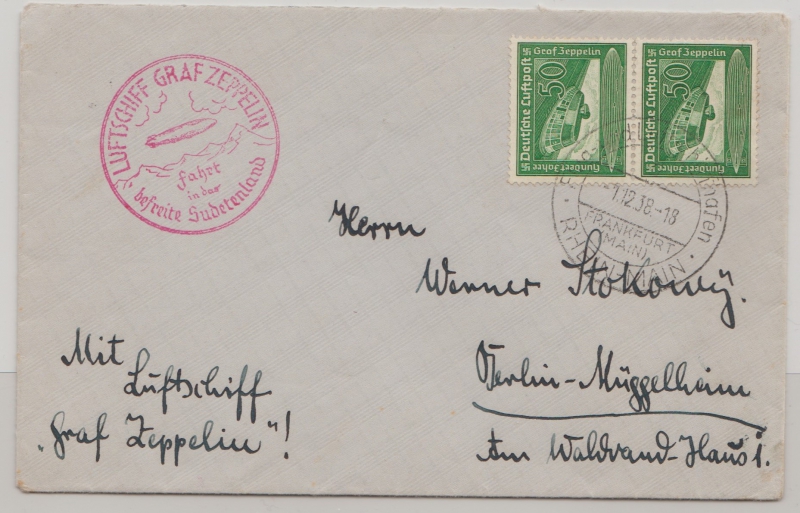 LUFTSCHIFF GRAF ZEPPELIN
Fahrt
in das
befreite Sudetenland
Graf Zeppelin
Deutsche Luftpost
50
Hundert Jahre
Graf Zeppelin
Deutsche Luftpost
50
Hundert Jahre
hafen
1.12.38.-18
FRANKFURT
(MAIN)
RHEIN-MAIN
Herrn
Werner Stokowÿ.
Berlin-Müggelheim
Am Waldrand-Haus 1.
Mit
Luftschiff
„Graf Zeppelin"!